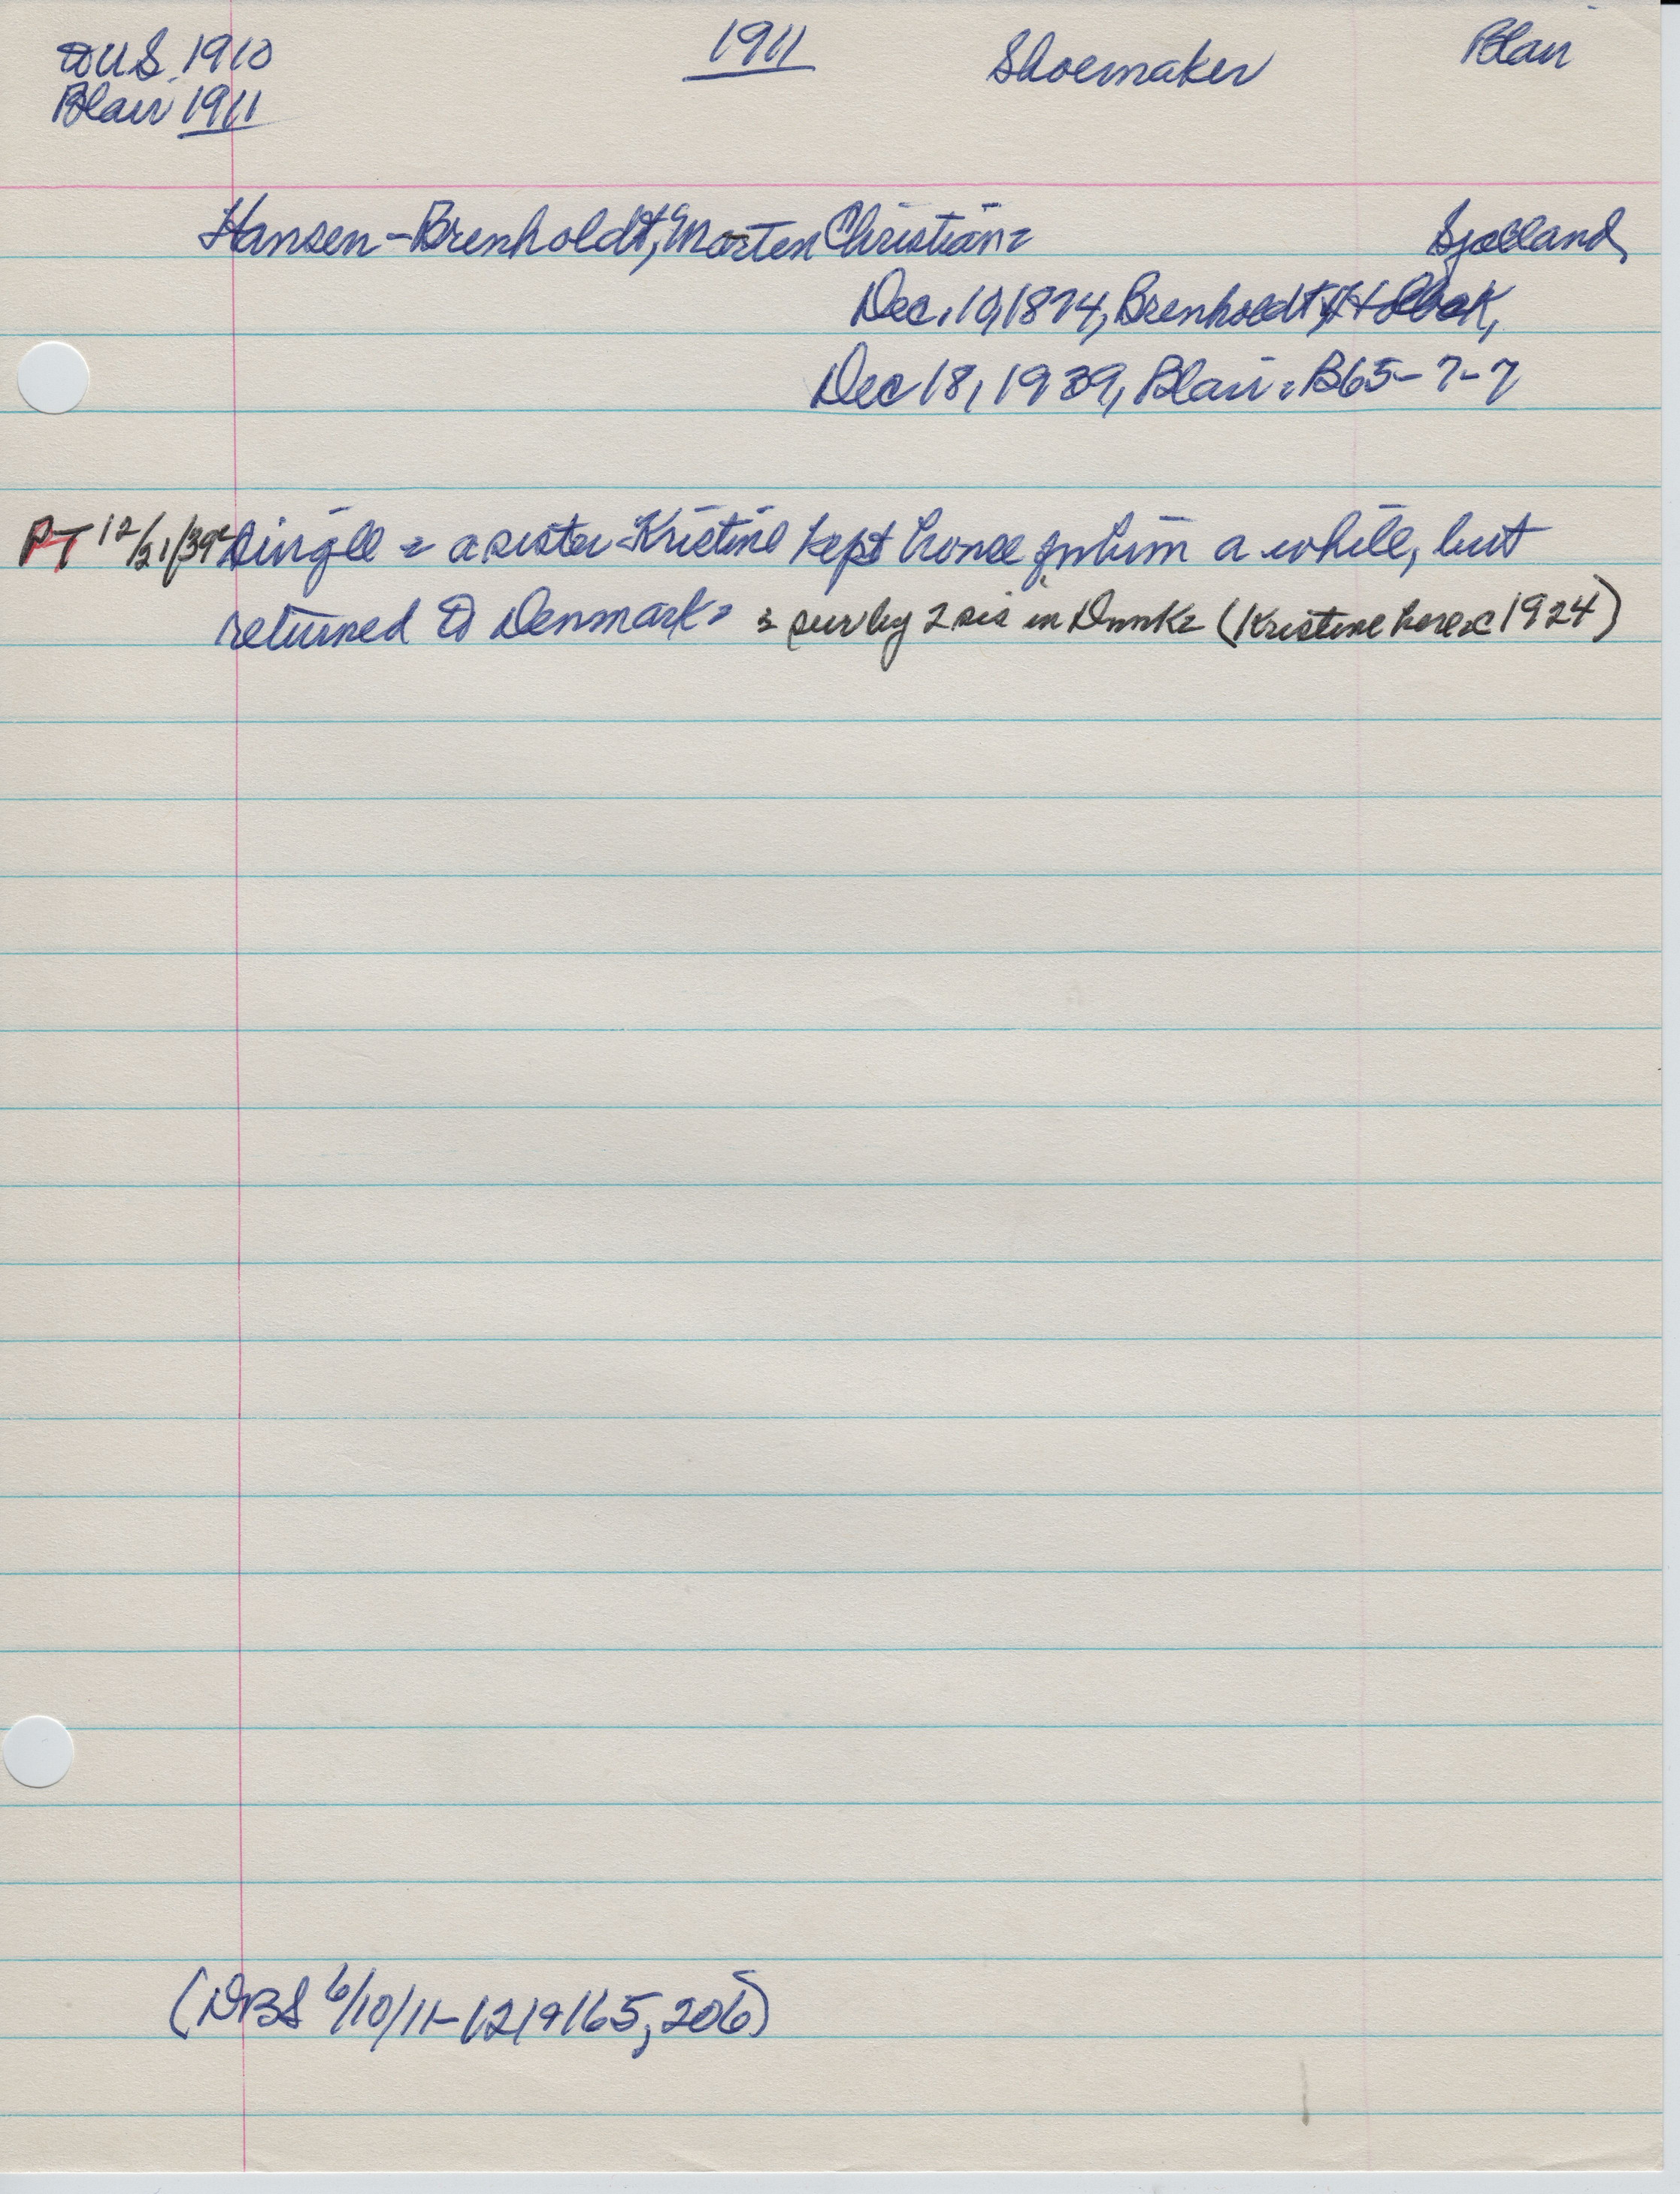 to U.S. 1910 1911 Shoemaker Blair
Blair 1911
Hansen-Brenholdt, Morten Christian= Sjælland,
Dec. 10, 1874, Brenholdt, Holbæk,
Dec 18, 1939, Blair. B65-7-7
PT 12/21/39 Single = a sister-Kristine kept house for him a while, but
returned to Denmark= = surv by 2 sis in Dnmk= (Kristine here c 1924)
(DBS 6/10/11-12/9/65, 206)